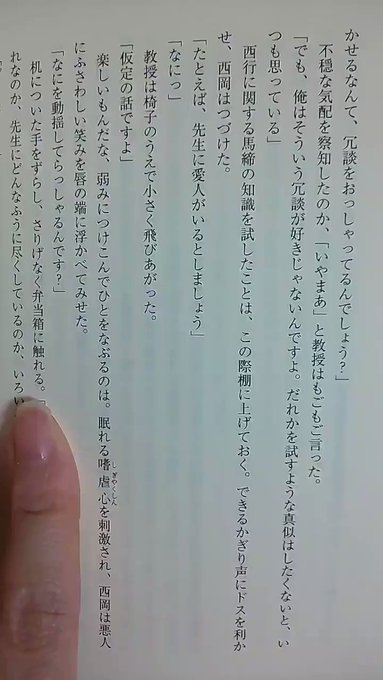 かせるなんて、冗談をおっしゃってるんでしょう?」
不穏な気配を察知したのか、「いやまあ」と教授はもごもご言った。
「でも、俺はそういう冗談が好きじゃないんですよ。だれかを試すような真似はしたくないと、い
つも思っている」
西行に関する馬締の知識を試したことは、この際棚に上げておく。できるかぎり声にドスを利か
せ、西岡はつづけた。
「たとえば、先生に愛人がいるとしましょう」
「なにっ」
教授は椅子のうえで小さく飛びあがった。
「仮定の話ですよ」
楽しいもんだな、弱みにつけこんでひとをなぶるのは。眠れる嗜虐心を刺激され、西岡は悪人
しぎやくしん
にふさわしい笑みを唇の端に浮かべてみせた。
「なにを動揺してらっしゃるんです?」
机についた手をずらし、さりげなく弁当箱に触れる。「
れなのか、先生にどんなふうに尽くしているのか、いろい